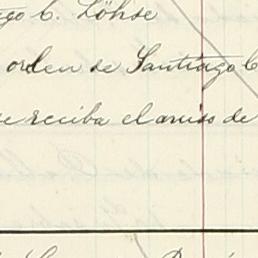 go C. Löhse
orden de Santiago C
se reciba el aviso de